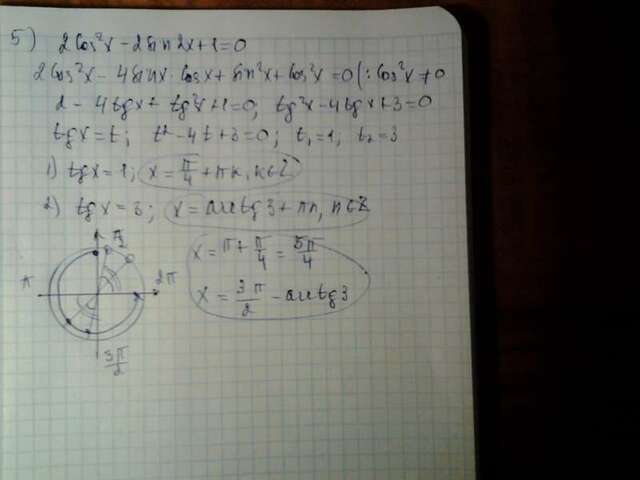 5) 2cos²x - 2sin2x + 1 = 0
2cos²x - 4sinx·cosx + sin²x + cos²x = 0 (: cos²x ≠ 0
2 - 4tgx + tg²x + 1 = 0; tg²x - 4tgx + 3 = 0
tgx = t; t² - 4t + 3 = 0; t₁ = 1; t₂ = 3
1) tgx = 1; x = π/4 + πk, k∈Z
2) tgx = 3; x = arctg3 + πn, n∈Z
π/2
π
2π
3π/2
x = π + π/4 = 5π/4
x = 3π/2 - arctg3